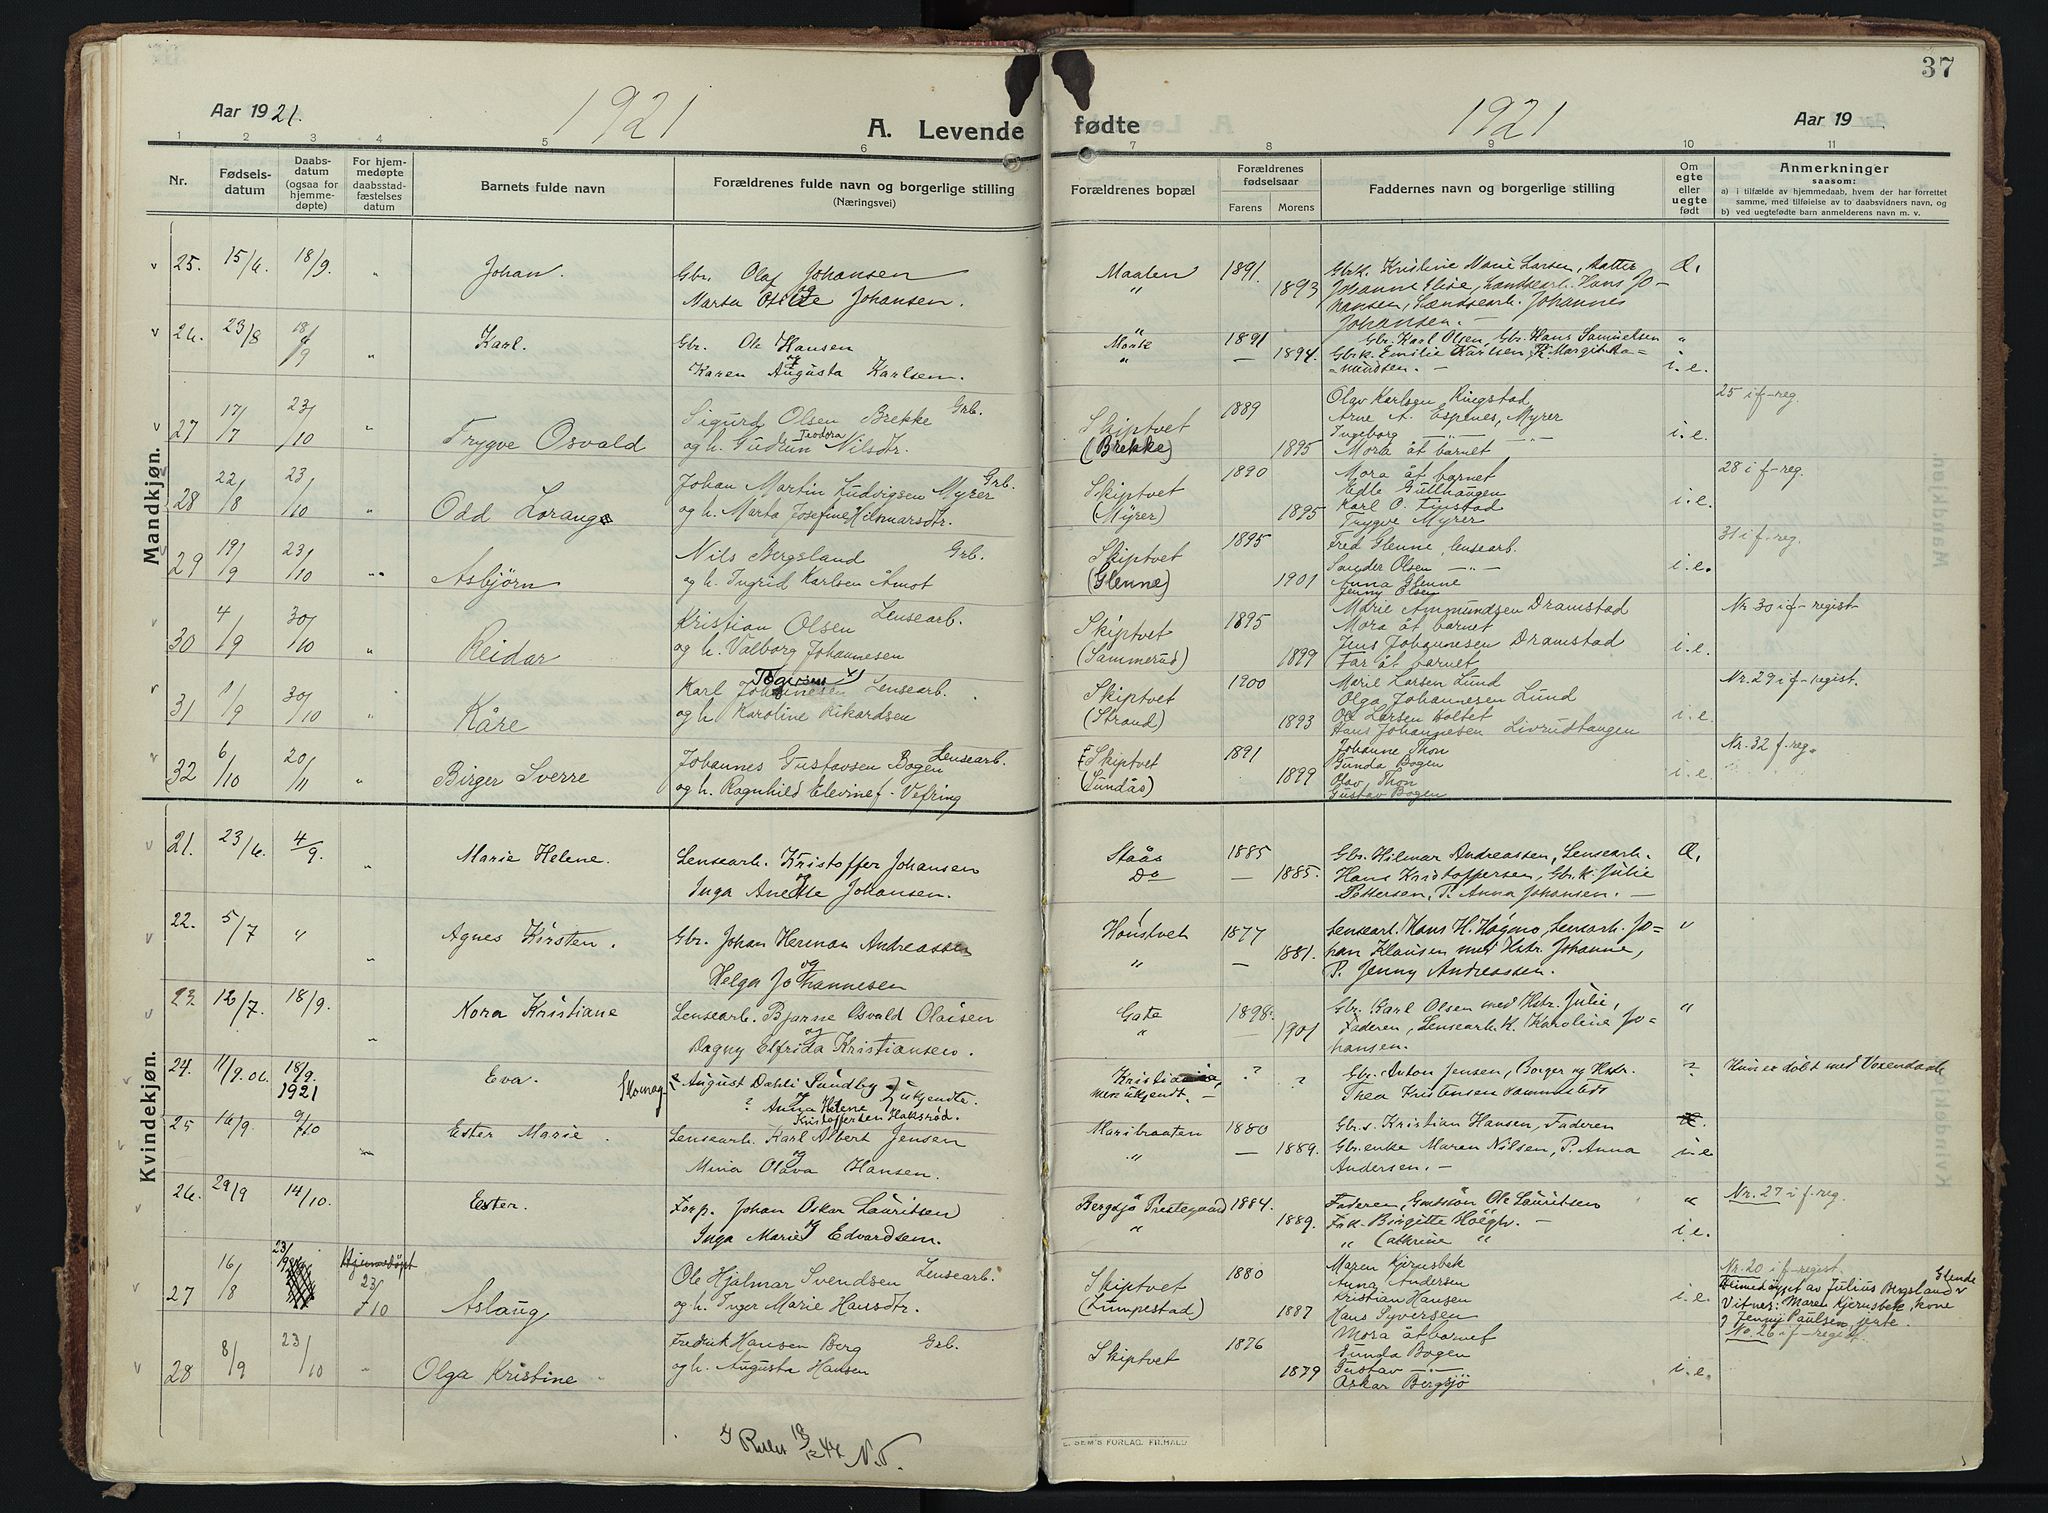 37
Aar 1921.
1921
A. Levende
fødte
1921
Aar 19
1 2 3 4 5 6 7 8 9 10 11
Nr.
Fødselsdatum
Daabsdatum (ogsaa for hjemmedøpte)
For hjemmedøpte daabsstadfæstelses datum
Barnets fulde navn
Forældrenes fulde navn og borgerlige stilling (Næringsvei)
Forældrenes bopæl
Forældrenes fødselsaar
Farens Morens
Faddernes navn og borgerlige stilling
Om egte eller uegte født
Anmerkninger
saasom:
a) i tilfælde av hjemmedaab, hvem der har forrettet samme, med tilføielse av to daabsvidners navn, og
b) ved uegtefødte barn anmelderens navn m. v.
Mandkjøn.
25. 15/6. 18/9. " Johan. Gbr. Olaf Johansen Maalen 1891 Gbrk. Kristine Marie Larsen, Datter
og Marta Johansen. " 1893 Johanne Elise, Lændsearb. Hans Jo-
hansen, Lændsearb. Johannes
Johansen. -
26. 23/8 18/9 " Karl. Gbr. Ole Hansen Mørk 1891 Gbr. Karl Olsen, Gbr. Hans Samuelsen "
og Karen Augusta Karlsen. " — 1894. Gbrk. Emilie Karlsen, P. Margit
mundsen. - i.e.
27 17/7 23/10 " Trygve Osvald Sigurd Olsen Brekke Grb. Skiptvet 1889 Olav Karlsen Ringstad 25 i f-reg.
Arne A. Espenes, Myrer
og h. Gudrun Teodora Nilsdtr. (Brekke) 1895 Ingeborg —"— —"— i.e.
Mora åt barnet
28 22/8 23/10 " Odd Lorang Johan Martin Ludvigsen Myrer Grb. Skiptvet 1890 Mora åt barnet 28 i f-reg.
Edle Gullhaugen
og h. Marta Josefine Hilmarsdtr. (Myrer) 1895 Karl O. Finstad i.e.
Trygve Myrer
29 19/9 23/10 " Asbjörn Nils Bergsland Grb. Skiptvet 1895 Fred Glenne, lensearb. 31 i f-reg.
Sander Olsen —"—
og h. Ingrid Karlsen Åmot (Glenne) 1901 Anna Glenne i.e.
Jenny Olsen
30 4/9 30/10 " Reidar Kristian Olsen Lensearb. Skiptvet 1895 Marie Ammundsen Dramstad Nr 30 i f-regist-
Mora åt barnet
og h. Valborg Johannesen (Sammerud) 1899 Jens Johannesen Dramstad i.e.
Far åt barnet
31 1/9 30/10 " Kåre Karl Johannesen Lensearb. Skiptvet 1900 Marie Larsen Lund Nr. 29 i f-regist.
Olga Johannesen Lund
og h. Karoline Rikardsen (Strand) 1893 Ole Larsen Holtet i.e.
Hans Johannesen Livrudtangen
32 6/10 20/11 " Birger Sverre Johannes Gustavsen Bogen Lensearb. Skiptvet 1891 Johanne Thon Nr. 32 f-reg.
Gunda Bogen
og h. Ragnhild Elevinef-Vefring (Sundås) 1899 Olav Thon i.e.
Gustav Bogen
Kvindekjøn.
21. 23/6. 4/9. " Marie Helene. Lensearb. Kristoffer Johansen Staås 1885 Gbr. Hilmar Andreassen, Lensearb.
og Inga Anette Johansen. Do — 1885. Hans Kristoffersen, Gbr.k. Julie
Pettersen, P. Anna Johansen. -
22. 5/7 " " Agnes Kirsten. Gbr. Johan Herman Andreassen Hönstvet 1877 Lensearb. Hans H. Högmo, Lensearb. Jo-
og Helga Johannesen " — 1881. han Klausen med Hstr. Johanne,
P. Jenny Andreassen.
23. 12/7. 18/9. " Nora Kristiane Lensearb. Bjarne Osvald Olaisen Gata 1898. Gbr. Karl Olsen med Hstr. Julie, "
og Dagny Elfrida Kristiansen. " 1901 Faderen, Lensearb.k. Karoline Jo-
hansen.
24. 11/9.06. 18/9. 1921 Eva. Skomag. August Dahli Sundby ukjendte. Kristiania, ? Gbr. Anton Jensen, Borger og Hstr. ?
og ? Anna Helene Kristoffersen Haksröd. ukjendt. - ? Thea Kristensen Hun er dølt med Voxendaab
25 16/9. 9/10 Ester Marie. Lensearb. Karl Albert Jensen Maribraaten 1880 Gbr.s. Kristian Hansen, Faderen
og Mina Olava Hansen. " — 1889. Gbr.enke Maren Nilsen, P. Anna i.e
Andersen. -
26. 29/9 14/10. Ester. Forp. Johan Oskar Lauritsen Bergsjö Prestegaard 1884. Faderen, Ole Lauritsen " Nr. 27 i f-reg.
og Inga Marie Edvardsen. " 1889. Frk. Birgitte Höegh. - i.e.
" Catrine "
27 16/8 23/9 Hjemmedöpt 23/10 Aslaug Ole Hjalmar Svendsen Lensearb. Skiptvet 1880 Maren Kjernsbek Nr. 20 i f-regist.
Anna Andersen Heimedöypt av Julius Bergsland Glende
Kristian Hansen Vitner: Maren Kjernsbek, kone
og h. Inger Marie Hansdtr. (Lumpestad) 1887 Hans Syversen i.e. og Jenny Paulsen, jente.
28 8/9 23/10 " Olga Kristine Fredrik Hansen Berg Grb. Skiptvet 1876 Mora åt barnet No. 26 i f-regist.
Gunda Bogen
og h. Augusta Hansen 1879 Gustav —"— i.e.
Oskar Bergsjö
E. SEM'S FORLAG, FR.HALD